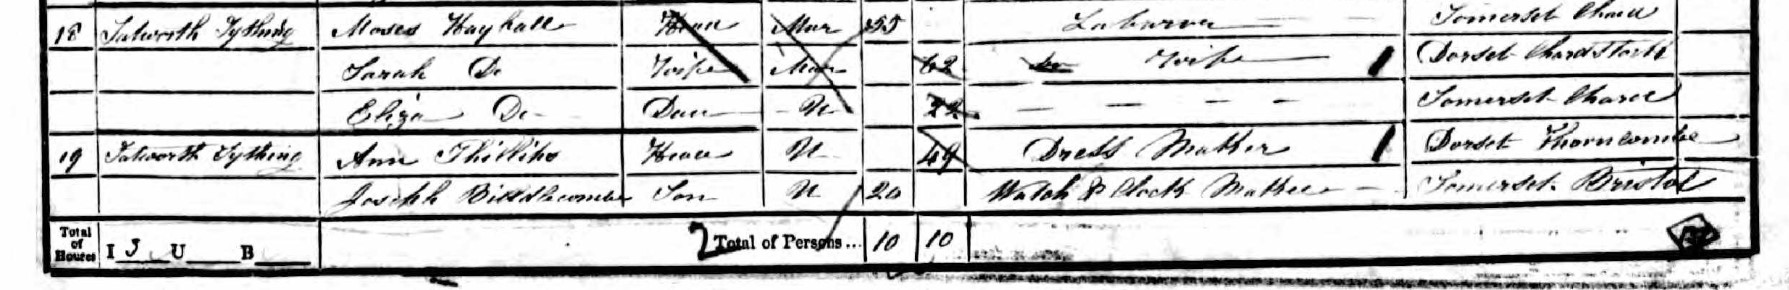 18 Tatworth Tything Moses Hayball Head Mar 55 Labourer Somerset Chard
Sarah Do Wife Mar 62 Do Wife Dorset Chardstock
Eliza Do Daur U 22 Somerset Chard
19 Tatworth Tything Ann Phillips Head U 49 Dress Maker Dorset Thorncombe
Joseph Biddlecombe Son U 20 Watch & Clock Maker Somerset Bristol
Total of Houses I 3 U B 2 Total of Persons... 10 10